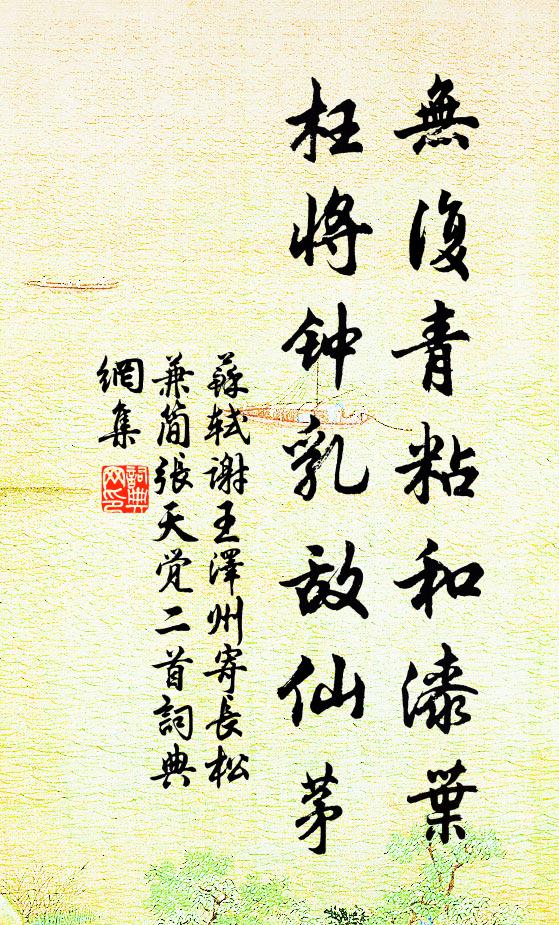 無復青粘和漆葉
枉将钟乳敌仙茅
蘇轼谢王澤州寄長松
兼简張天觉二首詞典
網集
詞典
网印